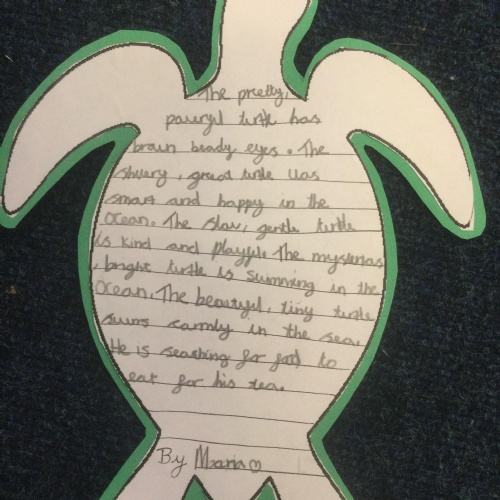 The pretty,
powerful turtle has
brain beady eyes. The
shivery, great turtle was
smart and happy in the
ocean. The slow, gentle turtle
is kind and playful. The mysterias
, bright turtle is swimming in the
ocean. The beautyful, tiny turtle
swims carmly in the sea.
He is searshing for food to
eat for his tea.
By